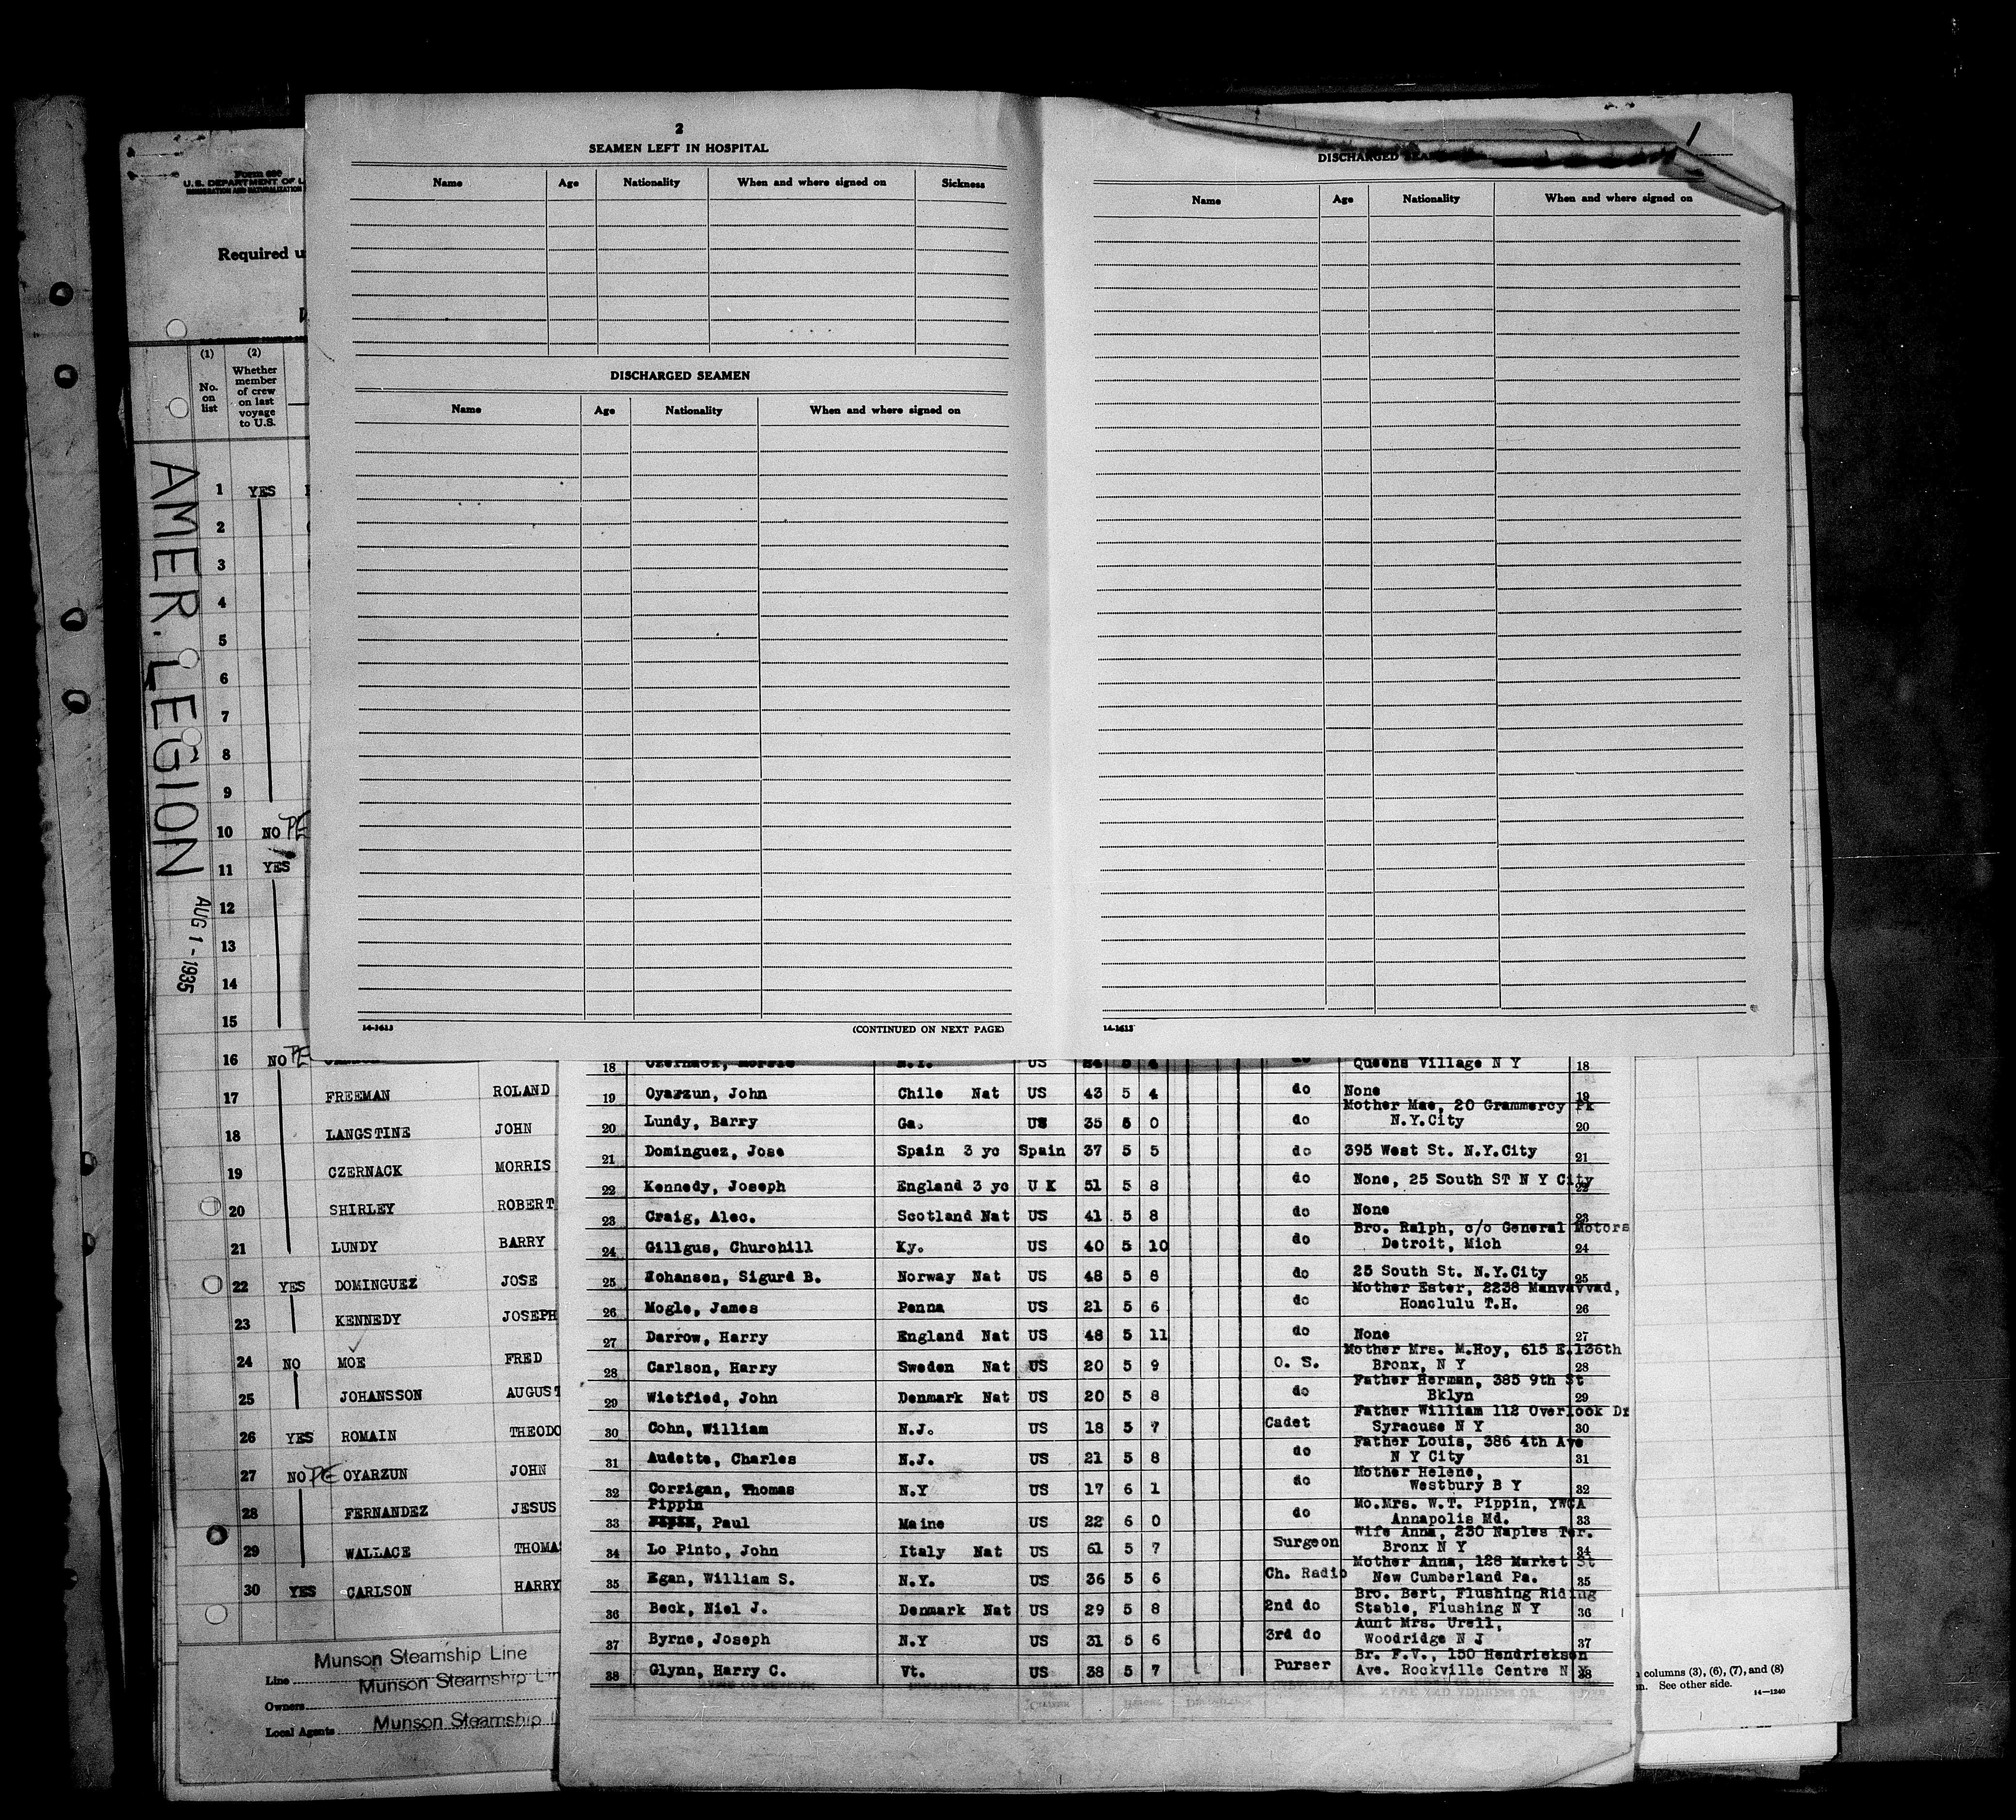 2
SEAMEN LEFT IN HOSPITAL
Name Age Nationality When and where signed on Sickness
DISCHARGED SEAMEN
Name Age Nationality When and where signed on
14-1613
(CONTINUED ON NEXT PAGE)
DISCHARGED
Name Age Nationality When and where signed on
14-1613
U.S. DEPARTMENT OF
Required
(1) (2)
No. on list
Whether member of crew on last voyage to U.S.
AMER. LEGION
AUG 1-1935
1 YES
2
3
4
5
6
7
8
9
10 NO PE
11 YES
12
13
14
15
16 NO PE
17 FREEMAN ROLAND
18 LANGSTINE JOHN
19 CZERNACK MORRIS
20 SHIRLEY ROBERT
21 LUNDY BARRY
22 YES DOMINGUEZ JOSE
23 KENNEDY JOSEPH
24 NO MOE FRED
25 JOHANSSON AUGUST
26 YES ROMAIN THEODO
27 NO PE OYARZUN JOHN
28 FERNANDEZ JESUS
29 WALLACE THOMA
30 YES CARLSON HARRY
Line Munson Steamship Line
Owners Munson Steamship Lin
Local Agents Munson Steamship
18 US Queens Village N Y 18
19 Oyarzun, John Chile Nat US 43 5 4 do None 19
20 Lundy, Barry Ga. US 35 6 0 do Mother Mae, 20 Grammercy Pk N.Y.City 20
21 Dominguez, Jose Spain 3 yc Spain 37 5 5 do 395 West St. N.Y.City 21
22 Kennedy, Joseph England 3 yc U K 51 5 8 do None, 25 South ST N Y City 22
23 Craig, Alec. Scotland Nat US 41 5 8 do None 23
24 Gillgus, Churchill Ky. US 40 5 10 do Bro. Ralph, c/o General Motors Detroit, Mich 24
25 Johansen, Sigurd B. Norway Nat US 48 5 8 do 25 South St. N.Y.City 25
26 Mogle, James Penna US 21 5 6 do Mother Ester, 2238 Manvavvad, Honolulu T.H. 26
27 Darrow, Harry England Nat US 48 5 11 do None 27
28 Carlson, Harry Sweden Nat US 20 5 9 O. S. Mother Mrs. M.Hoy, 615 E.136th Bronx, N Y 28
29 Wietfied, John Denmark Nat US 20 5 8 do Father Herman, 385 9th St Bklyn 29
30 Cohn, William N.J. US 18 5 7 Cadet Father William 112 Overlook Dr Syracuse N Y 30
31 Audette, Charles N.J. US 21 5 8 do Father Louis, 386 4th Ave N Y City 31
32 Corrigan, Thomas N.Y US 17 6 1 do Mother Helene, Westbury B Y 32
33 Pippin, Paul Maine US 22 6 0 do Mo.Mrs. W.T. Pippin, YWCA Annapolis Md. 33
34 Lo Pinto, John Italy Nat US 61 5 7 Surgeon Wife Anna, 230 Naples Ter. Bronx N Y 34
35 Egan, William S. N.Y. US 36 5 6 Ch. Radio Mother Anna, 128 Market St New Cumberland Pa. 35
36 Beck, Niel J. Denmark Nat US 29 5 8 2nd do Bro. Bert, Flushing Riding Stable, Flushing N Y 36
37 Byrne, Joseph N.Y US 31 5 6 3rd do Aunt Mrs. Urell, Woodridge N J 37
38 Glynn, Harry C. Vt. US 38 5 7 Purser Br. F.V., 150 Hendrickson Ave. Rockville Centre N Y 38
columns (3), (6), (7), and (8)
See other side.
14-1240